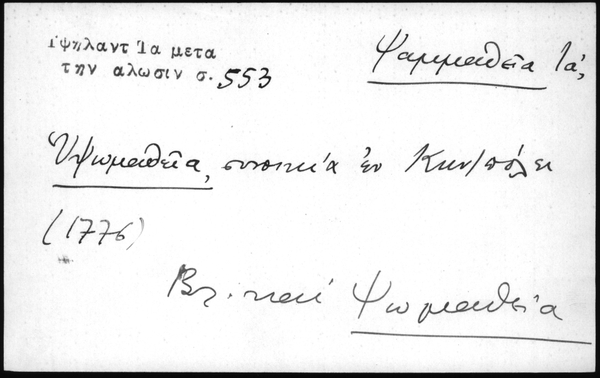 Ὑψηλαντ Τα μετα
την αλωσιν σ. 553
Ψαμμαθεῖα Ἰά,
Ὑψωμαθεῖα, συνοικία ἐν Κων/πόλει
(1776)
Βλ. καὶ Ψωμαθεῖα